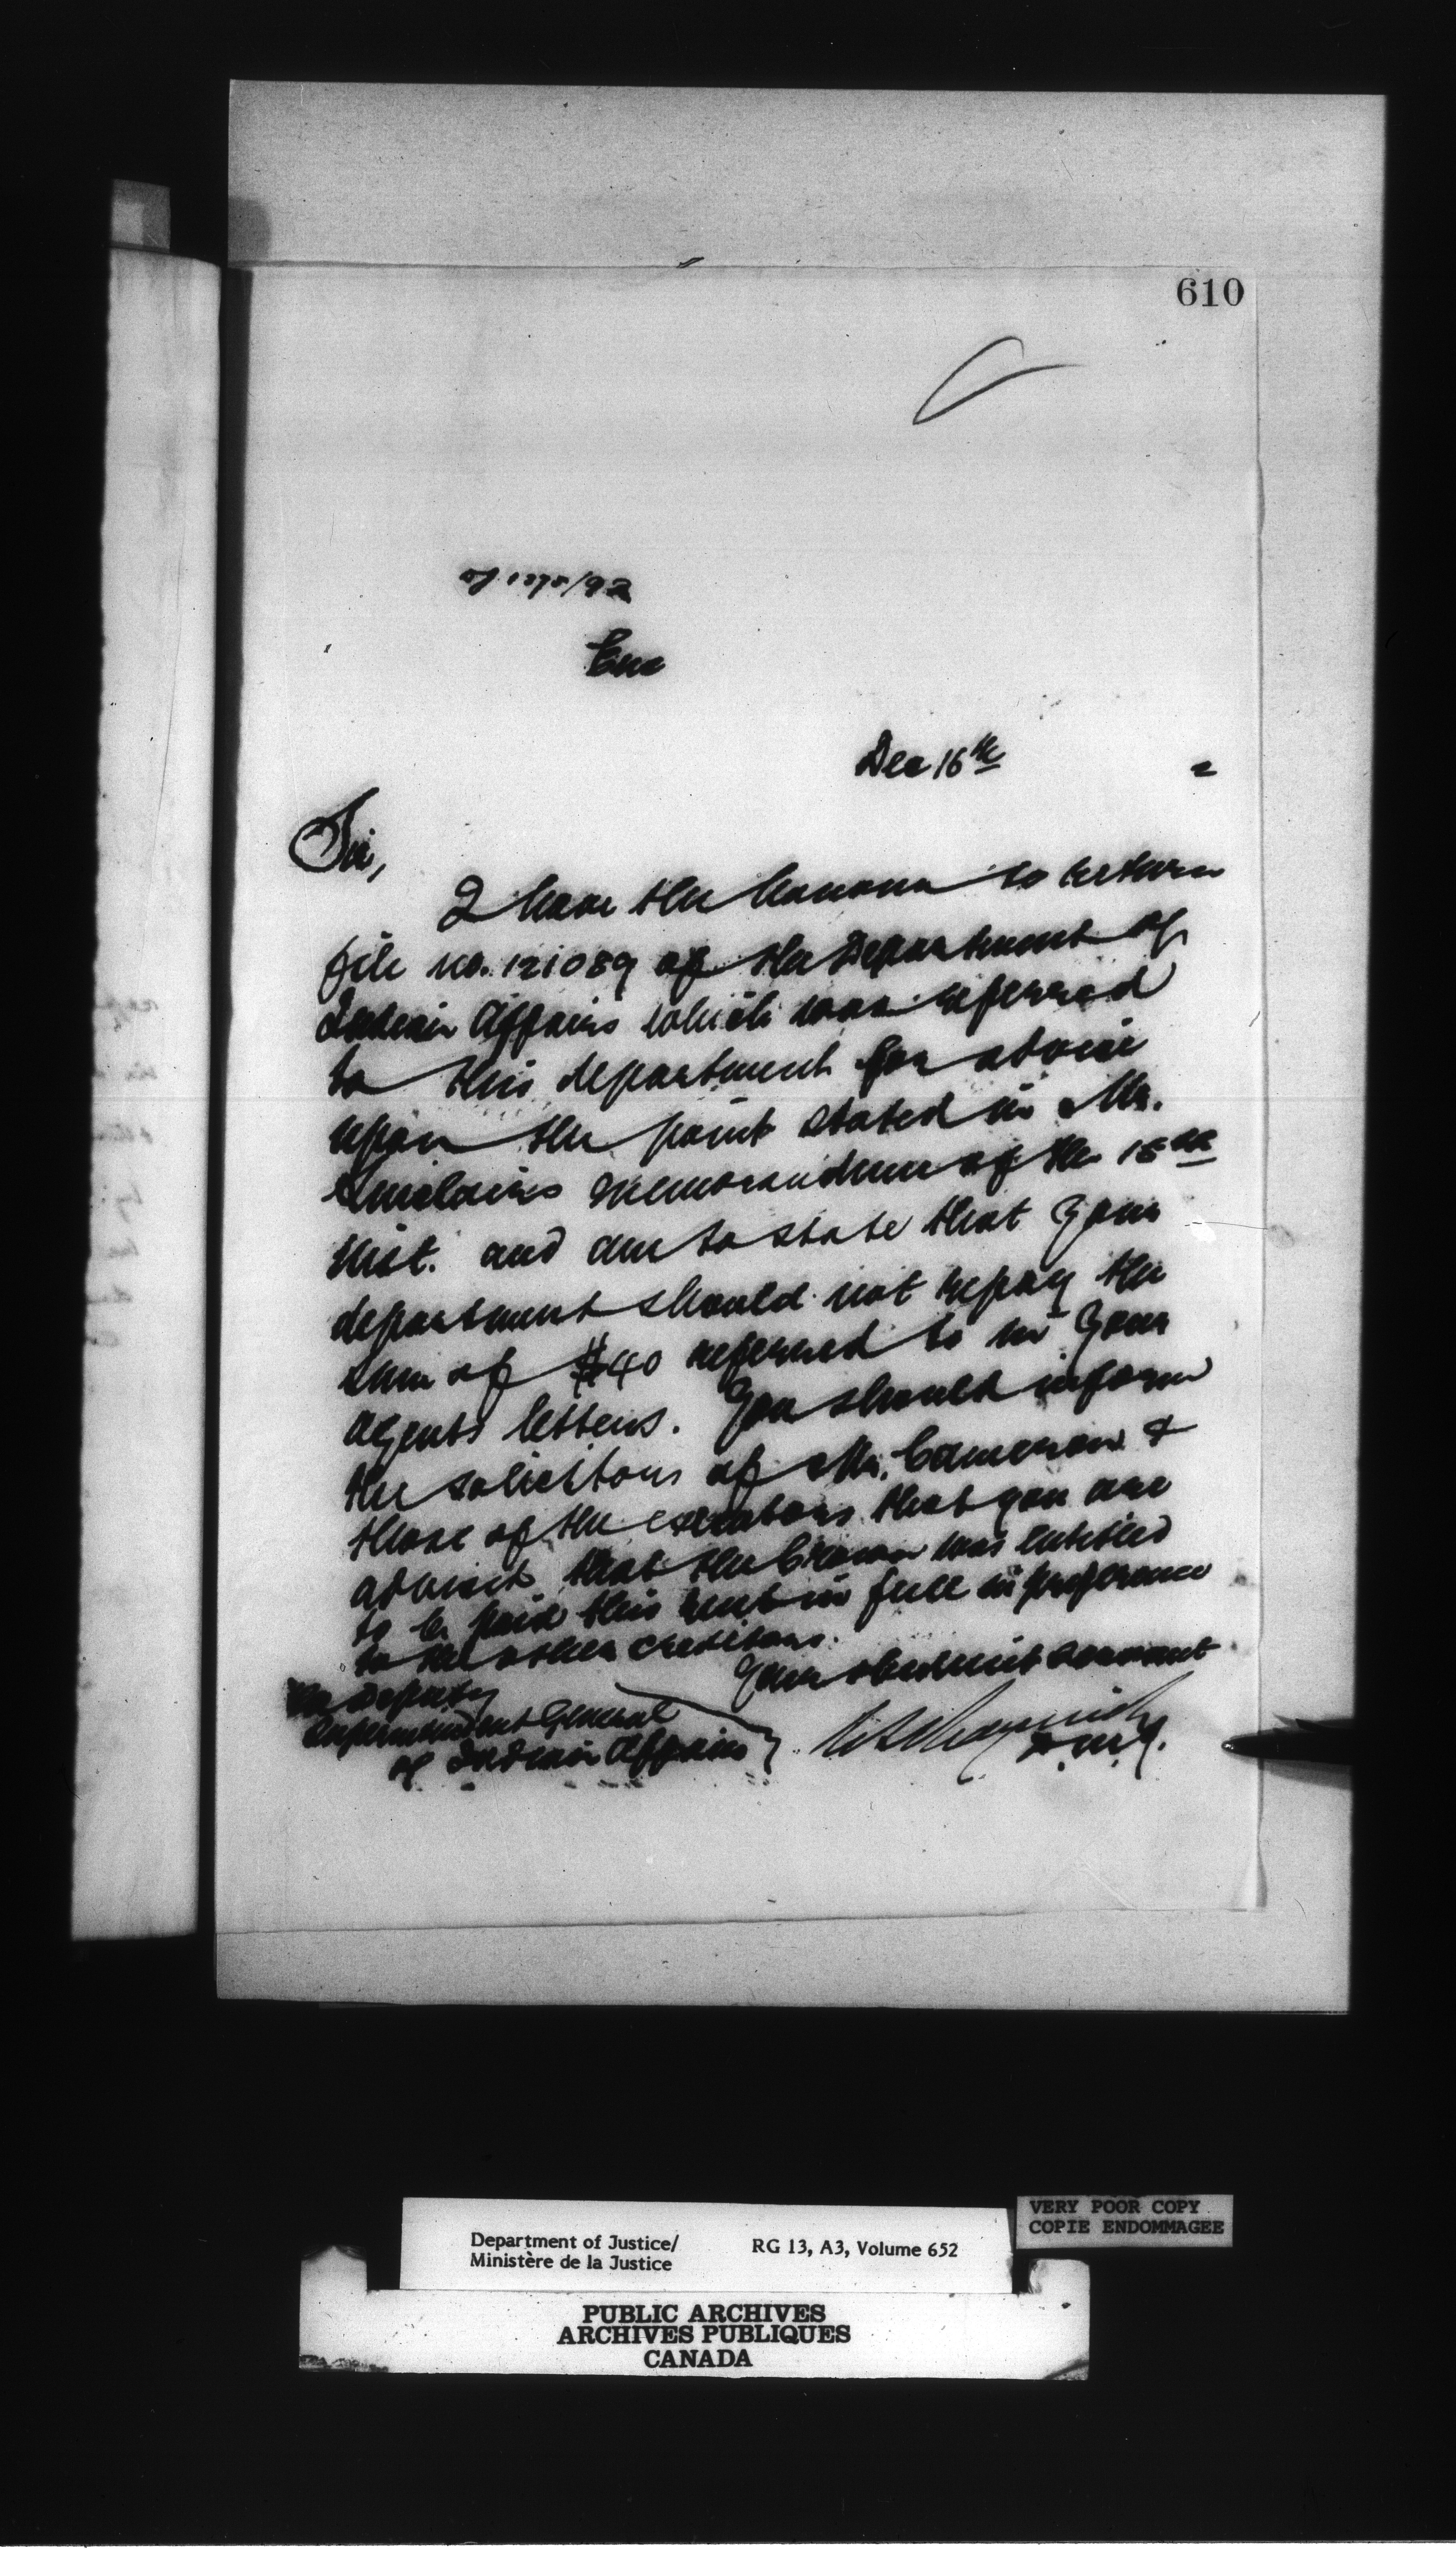 610
/92
Enc
Dec 16th 2
Sir,
I have the honour to return
file no. 121089 of the Department of
Indian Affairs which was referred
to this department for advice
upon the point stated in Mr.
Sinclairs memorandum of the 15th
inst. and am to state that your
department should not repay the
sum of $40 referred to in your
agents letters. You should inform
the solicitors of Mr. Cameron &
those of the executors that you are
advised that the Crown was entitled
to be paid this rent in full in preference
to the other creditors.
Your obedient servant
The Deputy
Superintendent General
of Indian Affairs
D.M.J.
Department of Justice/
Ministère de la Justice
RG 13, A3, Volume 652
VERY POOR COPY
COPIE ENDOMMAGEE
PUBLIC ARCHIVES
ARCHIVES PUBLIQUES
CANADA